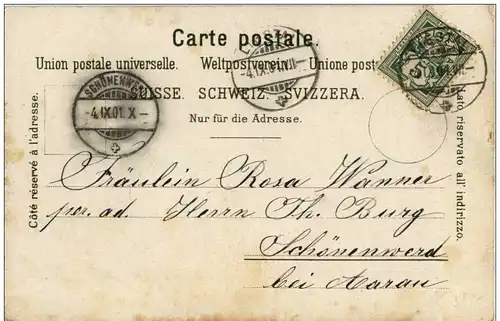 Carte postale.
Union postale universelle. Weltpostverein. Unione post
SUISSE. SCHWEIZ. SVIZZERA.
Nur für die Adresse.
Côté réservé à l'adresse.
Lato riservato all' indirizzo.
SCHÖNENWERD
-4.IX.01.X-
-4.IX.01.VII-
5
Fräulein Rosa Wanner
per. ad. Herrn Th. Burg
Schönenwerd
bei Aarau